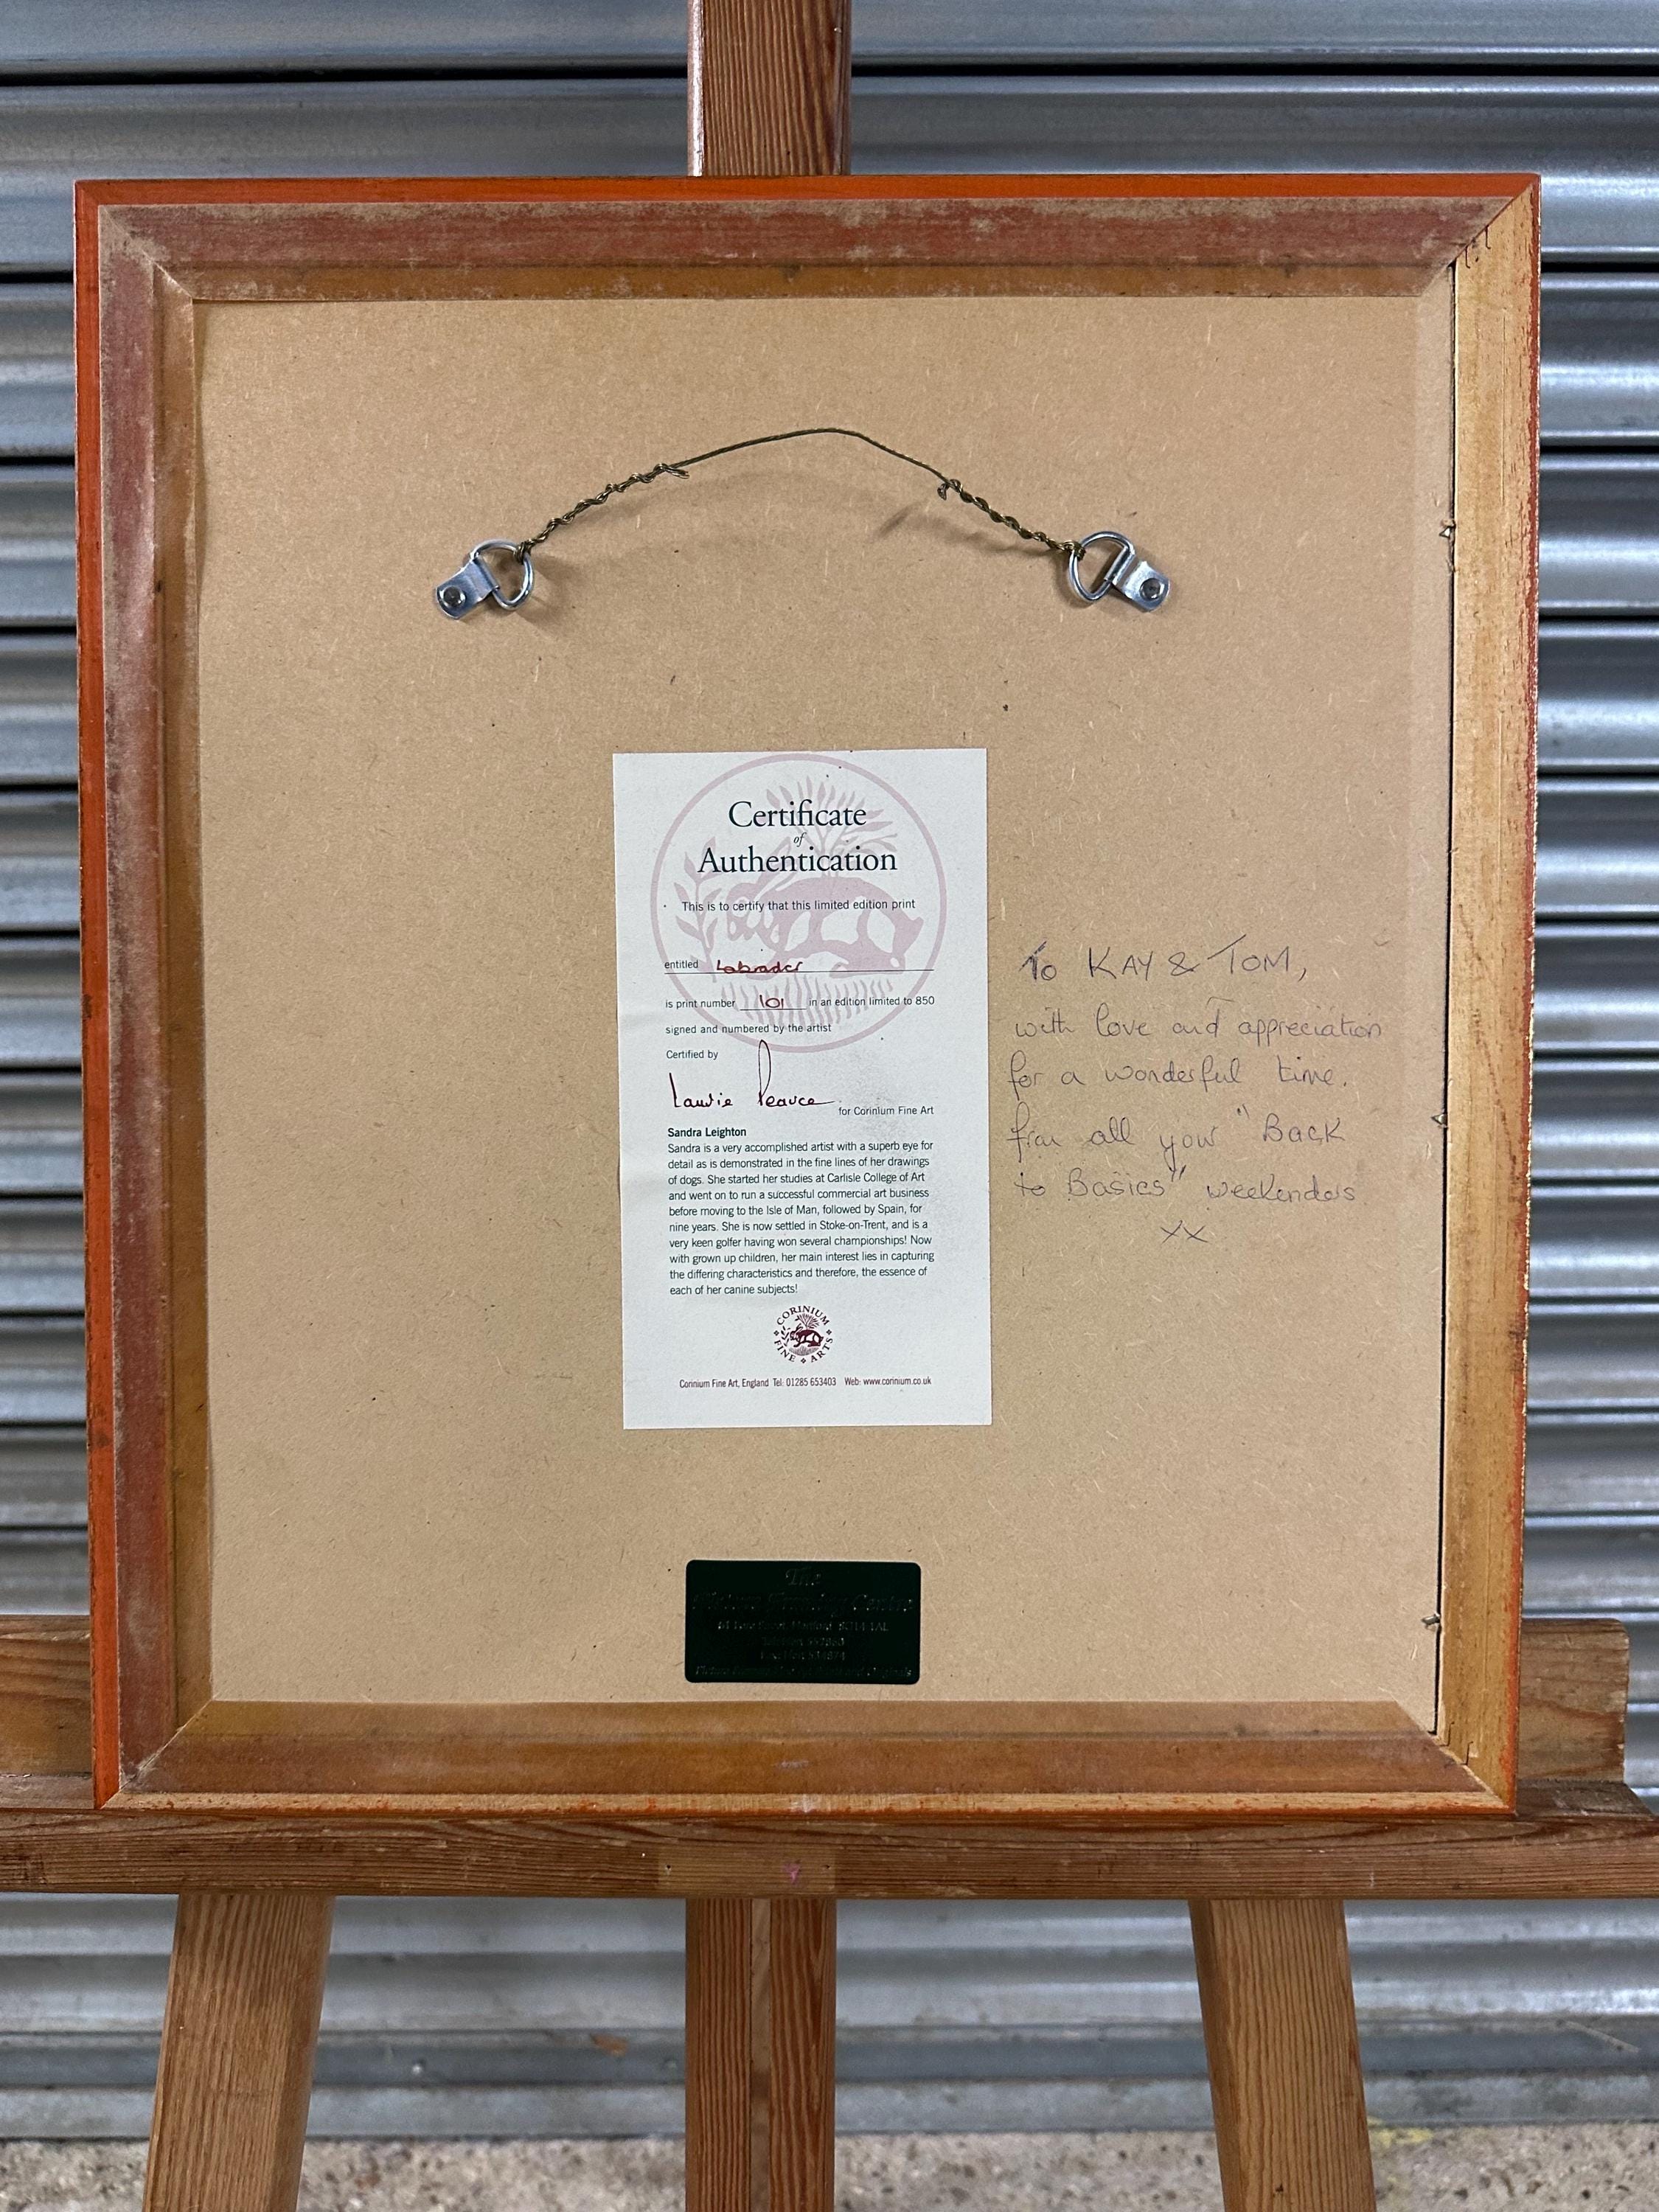 Certificate
of
Authentication
This is to certify that this limited edition print
entitled Labrador
is print number 101 in an edition limited to 850
signed and numbered by the artist
Certified by
Laurie Pearce for Corinium Fine Art
Sandra Leighton
Sandra is a very accomplished artist with a superb eye for
detail as is demonstrated in the fine lines of her drawings
of dogs. She started her studies at Carlisle College of Art
and went on to run a successful commercial art business
before moving to the Isle of Man, followed by Spain, for
nine years. She is now settled in Stoke-on-Trent, and is a
very keen golfer having won several championships! Now
with grown up children, her main interest lies in capturing
the differing characteristics and therefore, the essence of
each of her canine subjects!
CORINIUM
FINE ARTS
Corinium Fine Art, England Tel: 01285 653403 Web: www.corinium.co.uk
To KAY & TOM,
with love and appreciation
for a wonderful time.
from all your "Back
to Basics" weekenders
xx
The
Picture Framing Centre